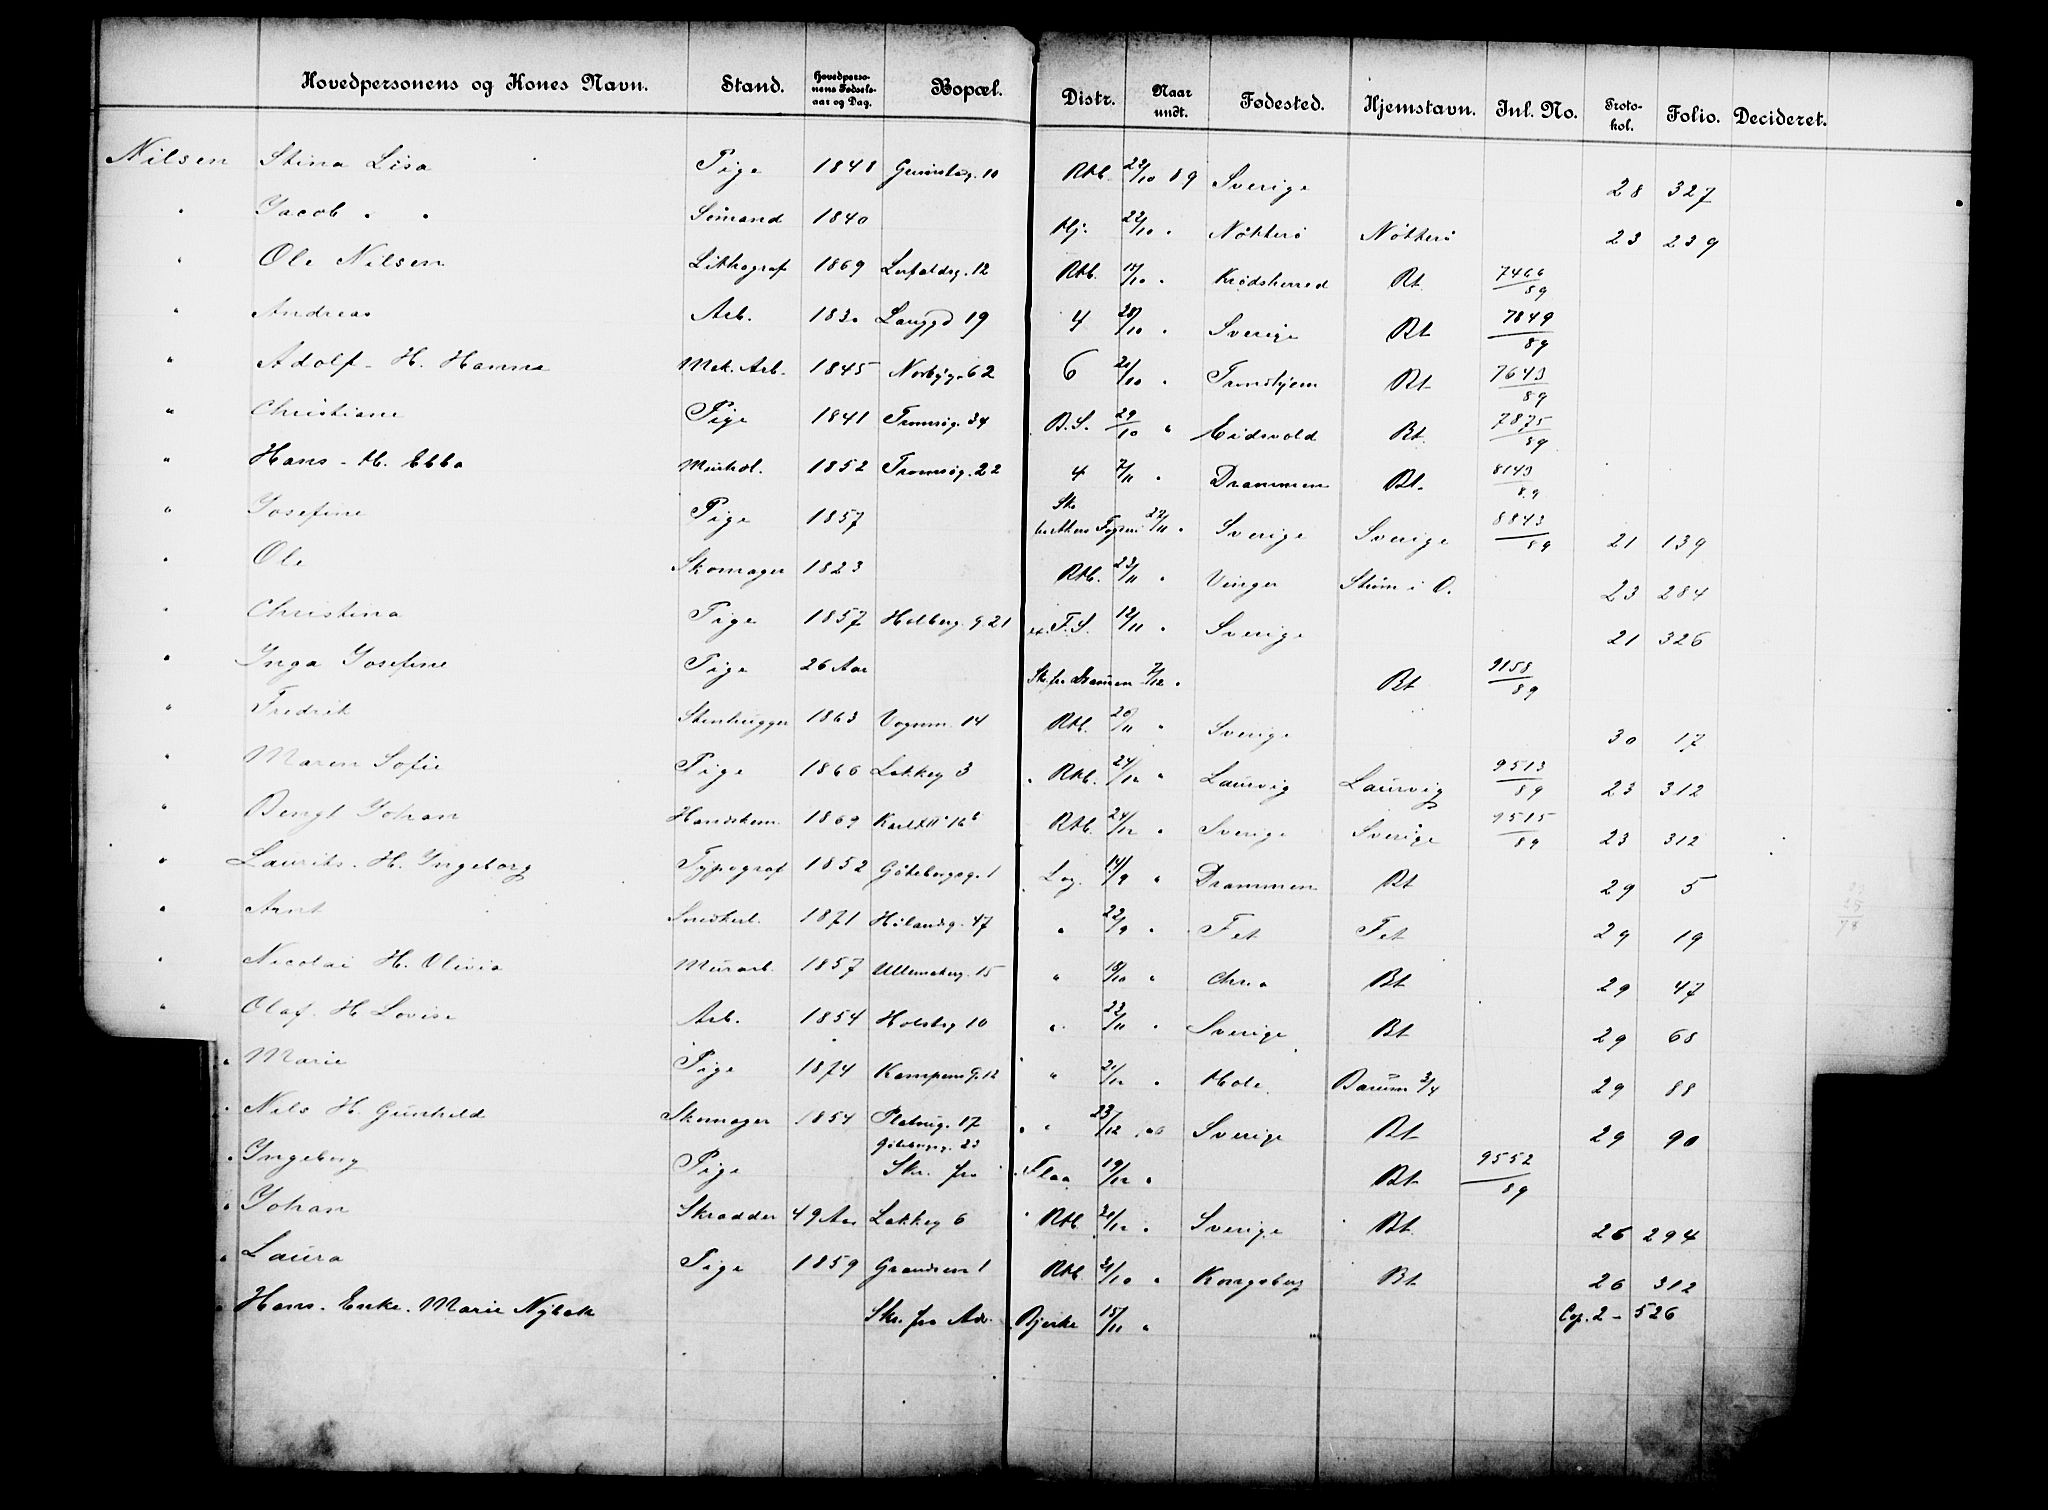 Hovedpersonens og Kones Navn. Stand. Hovedperso-nens Fødsels-aar og Dag. Bopæl. Distr. Naar undt. Fødested. Hjemstavn. Inl. No. Proto-kol. Folio. Decideret.
Nilsen Stina Lisa Pige 1848 10 Rkb. 22/10 89 Sverige 28 327
" Jacob " " Sømand 1840 Hj. 22/10 " Nøtterø Nøtterø 23 239
" Ole Nilsen Lithograf 1869 12 Rkb. 18/10 " Krødsherred Bt. 7466/89
" Andreas Arb. 1830 Langgd 19 4 28/10 " Sverige Bt 7849/89
" Adolf - H. Hanna Mek. Arb. 1845 Norbyg. 62 6 21/10 " Trondhjem Bt. 7643/89
" Christiane Pige 1841 Tromsøg. 34 B.S. 29/10 " Eidsvold Bt. 7875/89
" Hans - H. Ebba 1852 Tromsøg. 22 4 7/11 " Drammen Bt. 8143/89
" Josefine Pige 1857 Skr. 22/11 " Sverige Sverige 8843/89 21 139
" Ole Skomager 1823 Rkb. 23/11 " Vinger Strøm i O. 23 284
" Christina Pige 1857 Holberg. g. 21 F.S. 12/11 " Sverige 21 326
" Inga Josefine Pige 26 Aar Skr. fra Drammen 7/12 " Bt 9158/89
" Fredrik Stenhugger 1863 Vognm. 14 Rkb. 20/11 " Sverige 30 17
" Maren Sofie Pige 1866 Lakkeg 3 Rkb. 24/12 " Laurvig Laurvig 9513/89 23 312
" Bengt Johan Handskem. 1869 Karl XII 16 b Rkb. 24/12 " Sverige Sverige 9515/89 23 312
" Laurits - H. Ingeborg Typograf 1852 Gøteborgsg. 1 Log. 14/9 " Drammen Bt 29 5
" Arnt Snedkerl. 1871 Hølandsg. 47 " 22/9 " Fet Fet 29 19
" Nicolai H. Olivia Murarb. 1857 Ullensakerg. 15 " 18/10 " Chra Bt 29 47
" Olaf - H. Lovise Arb. 1854 Holstsg 10 " 22/11 " Sverige Bt 29 68
" Marie Pige 1874 Kampens G. 12 " 21/12 " Hole Bærum 3/4 29 88
" Nils H. Gunhild Skomager 1854 Platoug. 17 " 23/12 Sverige Bt 29 90
Gøteborgsg. 23
" Ingeborg Pige Skr. fra Flaa 19/12 " Bt 9552/89
" Johan Skrædder 49 Aar Lakkeg 6 Rkb 21/12 " Sverige Bt. 26 294
" Laura Pige 1859 Grændsen 1 Rkb 21/10 " Kongsberg Bt 26 312
" Hans - Enke - Marie Skr. fra Adv. Bjerke 15/11 " Cop. 2 - 526